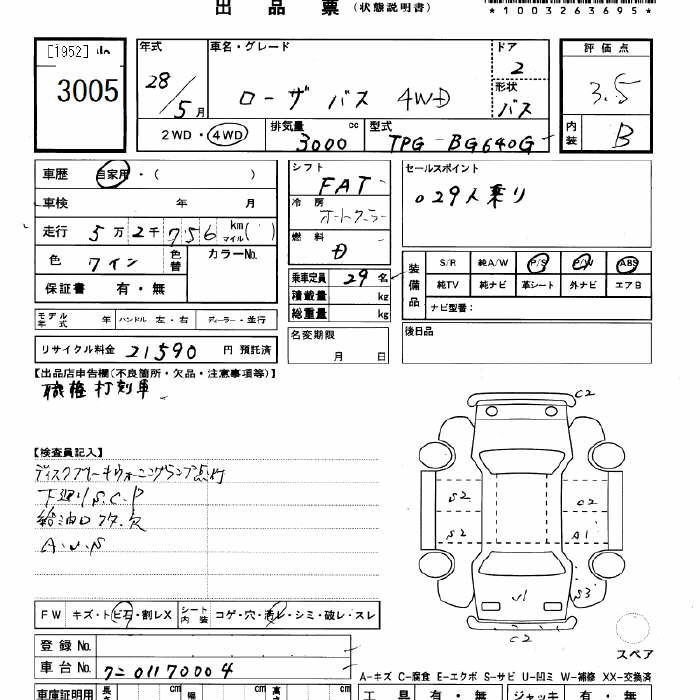 出 品 票 (状態説明書)
*1003263695*
[1952]
3005
年式
28/5月
車名・グレード
ローザ バス 4WD
ドア
2
形状
バス
評価点
3.5
内装
B
2WD・4WD
排気量
3000 cc
型式
TPG-BG640G
車歴 自家用・( )
車検 年 月
走行 5万2千756 km マイル( )
色 ワイン 色替 カラーNo.
保証書 有・無
シフト
FAT
冷房
オートクーラー
燃料
D
乗車定員 29名
積載量 kg
総重量 kg
セールスポイント
○29人乗り
装備品
S/R 純A/W P/S P/W ABS
純TV 純ナビ 革シート 外ナビ エアB
ナビ型番:
モデル年式 年 ハンドル 左・右 ディーラー・並行
リサイクル料金 21590 円 預託済
名変期限
月 日
後日品
【出品店申告欄(不良箇所・欠品・注意事項等)】
職権打刻車
【検査員記入】
ディスクブレーキウォーニングランプ点灯
下廻りS.C.P
給油口フタ欠
A.U.S
C2
S2
C2
S2
A1
U1
S3
C2
スペア
FW キズ・トビ石・割レX シート内装 コゲ・穴・汚レ・シミ・破レ・スレ
登録No.
車台No. クニ01170004
A-キズ C-腐食 E-エクボ S-サビ U-凹ミ W-補修 XX-交換済
車庫証明用 長さ cm 幅 cm 高さ cm
工具 有・無 ジャッキ 有・無